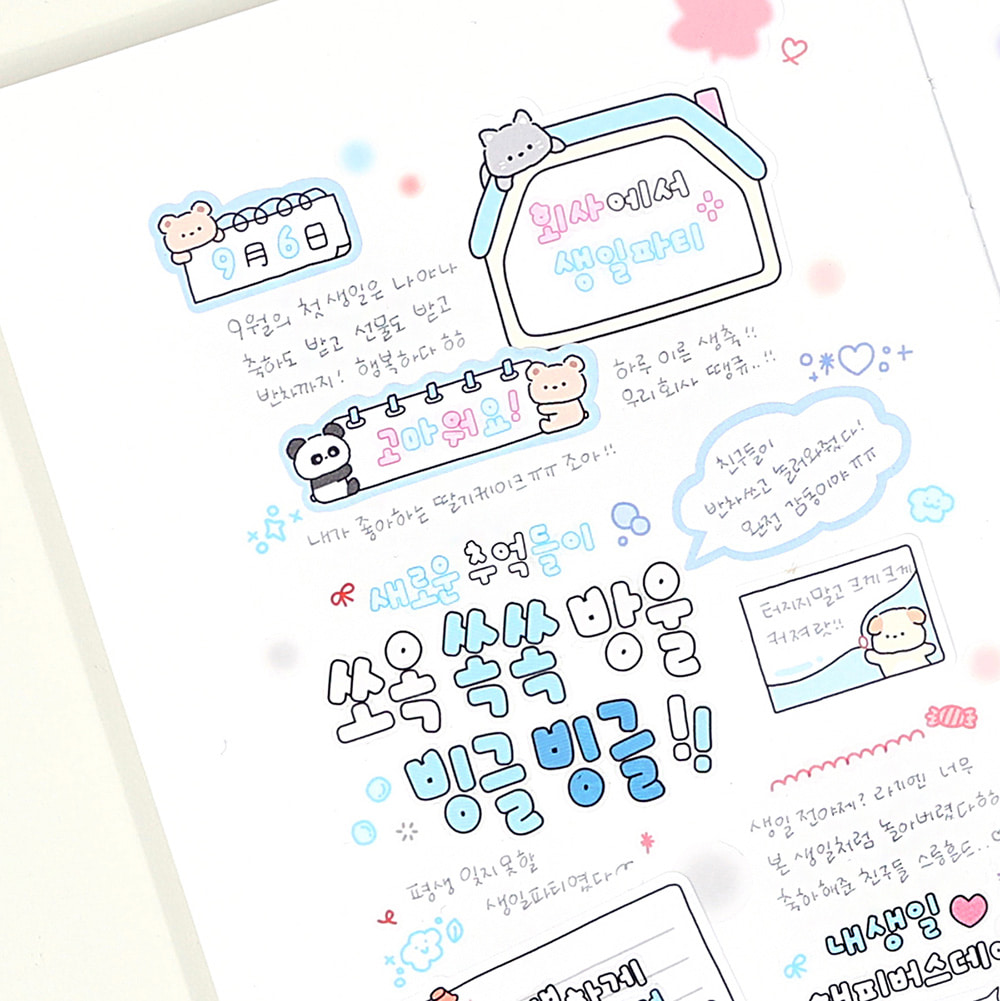 9月6日
9월의 첫 생일은 나야나
축하도 받고 선물도 받고
반차까지! 행복하다 ㅎㅎ
회사에서
생일파티
하루 이른 생축!!
우리회사 땡큐..!!
고마워요!
내가 좋아하는 딸기케이크ㅠㅠ 조아!!
친구들이
반차쓰고 놀러와줬다!
완전 감동이야 ㅠㅠ
새로운 추억들이
쏘옥 쏙쏙 방울
빙글 빙글!!
터지지말고 크게 크게
커져랏!!
평생 잊지못할
생일파티였다
생일 전야제? 라지엔 너무
본 생일처럼 놀아버렸다ㅎㅎ
축하해준 친구들 스릉흔드...♡
내생일
해피버스데이